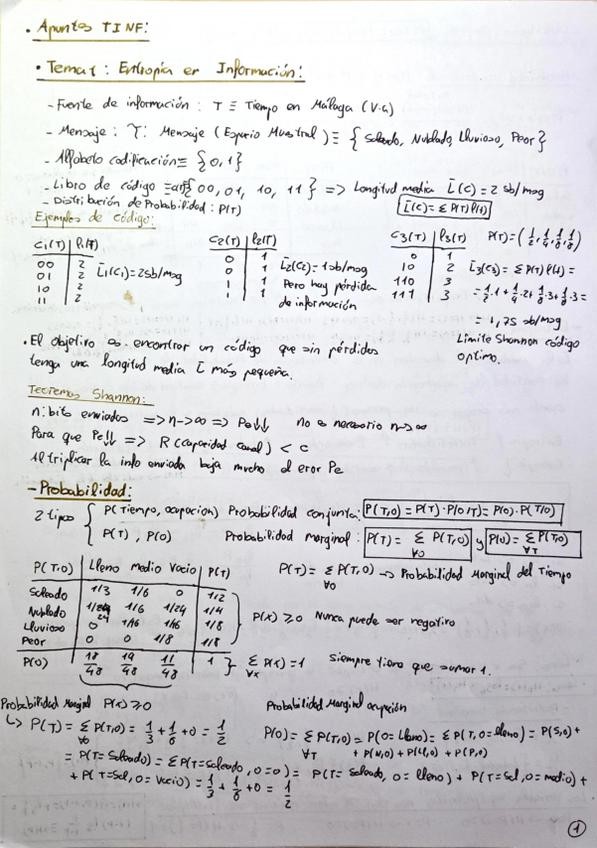 • Apuntes TINF:
• Tema 1 : Entropía en Información:
- Fuente de información : T ≡ Tiempo en Málaga (V.a)
- Mensaje : T: Mensaje (Espacio Muestral) ≡ { Soleado, Nublado, Lluvioso, Peor }
- Alfabeto codificación ≡ {0,1}
- Libro de código ≡ { 00, 01, 10, 11 } => Longitud media L̄(C) = 2 sb/msg
- Distribución de Probabilidad : P(T)
L̄(C) = Σ P(T) l(t)
Ejemplos de código:
C1(T) | l1(T)
00 2
01 2
10 2
11 2
L̄1(C1) = 2sb/msg
C2(T) | l2(T)
0 1
0 1
1 1
1 1
L̄2(C2) = 1sb/msg
Pero hay pérdida
de información
C3(T) | l3(T)
0 1
10 2
110 3
111 3
P(T) = (1/2, 1/4, 1/8, 1/8)
L̄3(C3) = Σ P(T) l(t) =
= 1/2·1 + 1/4·2 + 1/8·3 + 1/8·3 =
= 1,75 sb/msg
Límite Shannon código
optimo.
• El objetivo es encontrar un código que sin pérdidas
tenga una longitud media L̄ más pequeña.
Teorema Shannon:
n: bits enviados => n->∞ => Pe↓↓ no es necesario n->∞
Para que Pe↓↓ => R (capacidad canal) < c
Al triplicar la info enviada baja mucho el eror Pe
- Probabilidad:
2 tipos { P(Tiempo, ocupacion) Probabilidad conjunta: P(T,O) = P(T)·P(O/T) = P(O)·P(T/O)
P(T) , P(O) Probabilidad marginal : P(T) = Σ∀O P(T,O) y P(O) = Σ∀T P(T,O)
P(T,O) | Lleno medio Vacio | P(T)
Soleado 1/3 1/6 0 1/2
Nublado 1/24 1/6 1/24 1/4
Lluvioso 0 1/16 1/16 1/8
Peor 0 0 1/8 1/8
P(O) 18/48 19/48 11/48 1
P(T) = Σ∀O P(T,O) -> Probabilidad Marginal del Tiempo
P(x) ≥ 0 Nunca puede ser negativo
Σ∀x P(x) = 1 Siempre tiene que sumar 1.
Probabilidad Marginal P(x) ≥ 0
↳ P(T) = Σ∀O P(T,O) = 1/3 + 1/6 + 0 = 1/2
= P(T=Soleado) = Σ P(T=soleado, O=o) = P(T=Soleado, O=lleno) + P(T=Sol, O=medio) +
+ P(T=Sol, O=Vacio) = 1/3 + 1/6 + 0 = 1/2
Probabilidad Marginal ocupación
P(O) = Σ∀T P(T,O) = P(O=Lleno) = Σ P(T, O=lleno) = P(S,O) +
+ P(N,O) + P(Ll,O) + P(P,O)
1